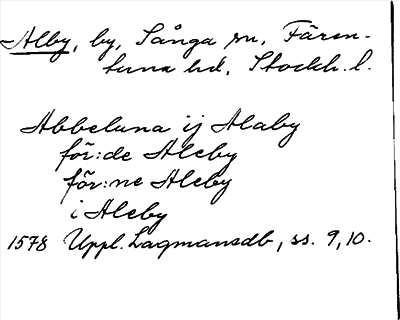 Alby, by, Sånga sn, Fären-
tuna hd, Stockh. l.
Abbeluna ij Alaby
för:de Aleby
för:ne Aleby
i Aleby
1578 Uppl. Lagmansdb, ss. 9, 10.